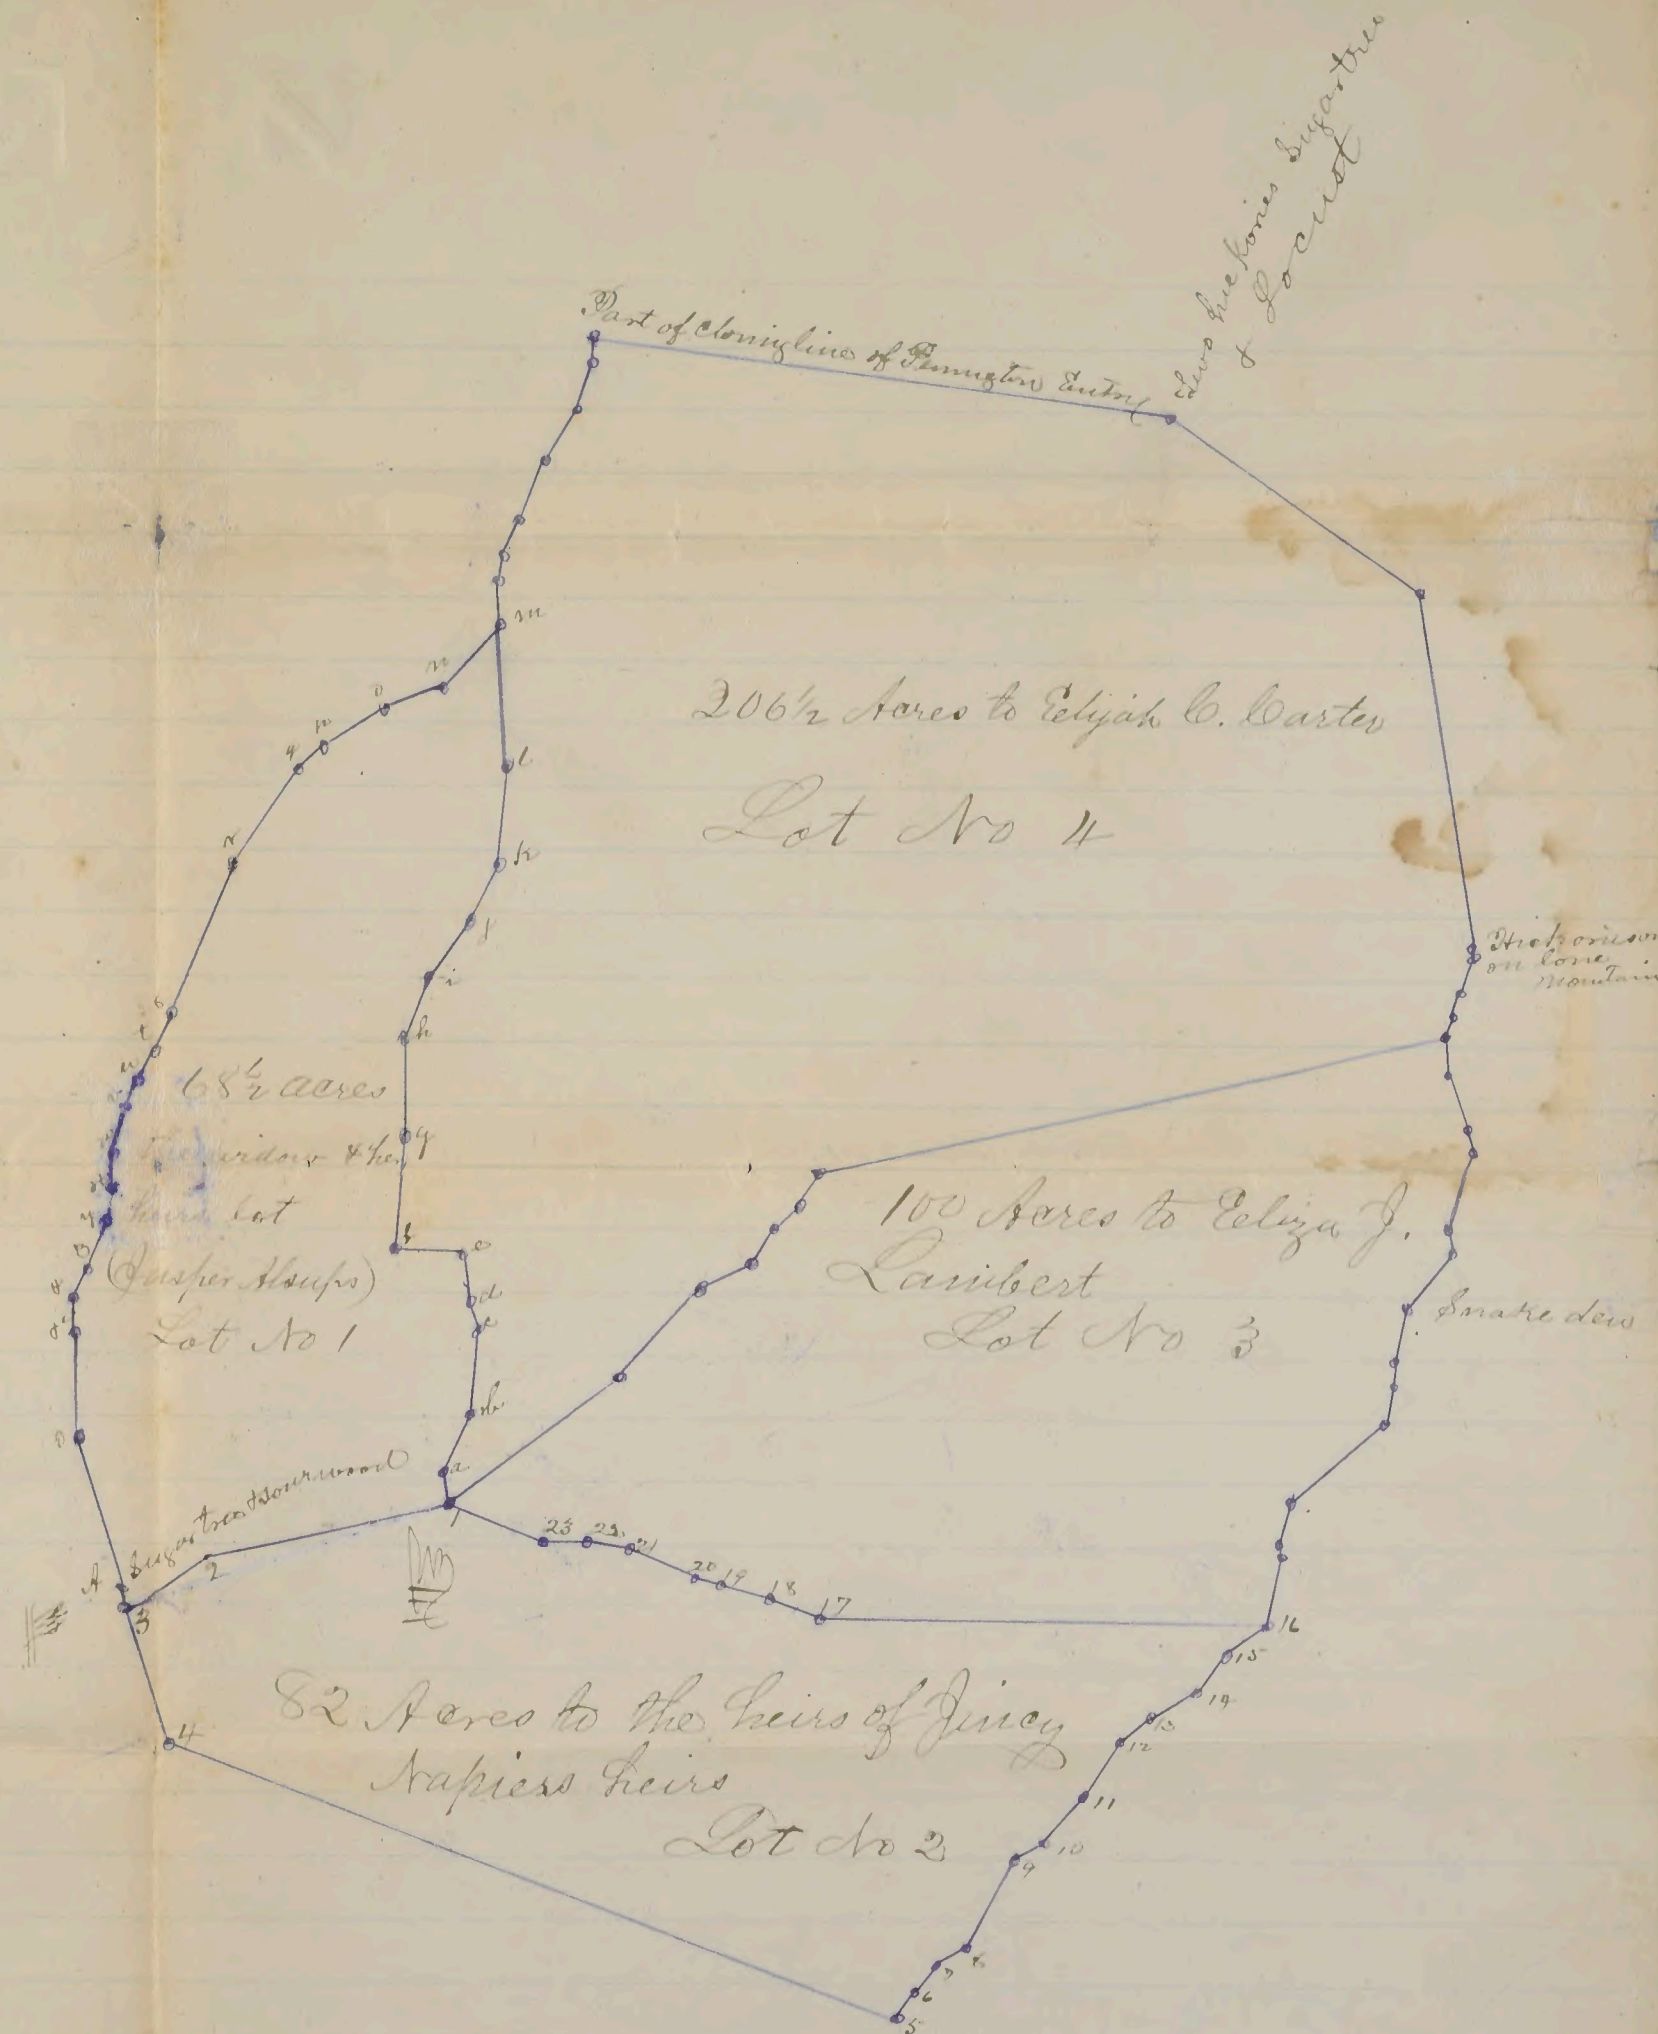 Two hickories Sugartree
& Locust
Part of Closing line of Pennington Entry
m
n
o
p
q
l
206½ Acres to Elijah C. Carter
Lot No 4
r
k
j
i
Hickories on
on lone
Mountain
s
h
t
u
68½ acres
g
widow & her
heirs lot
(Jasper Alsups)
Lot No 1
f
e
d
c
b
a
100 Acres to Eliza J.
Lambert
Lot No 3
Snake den
Sugartree & sourwood
A
1
2
3
4
23
22
21
20
19
18
17
16
15
14
13
12
11
10
9
8
7
6
5
82 Acres to the heirs of Jincy
Napiers heirs
Lot No 2